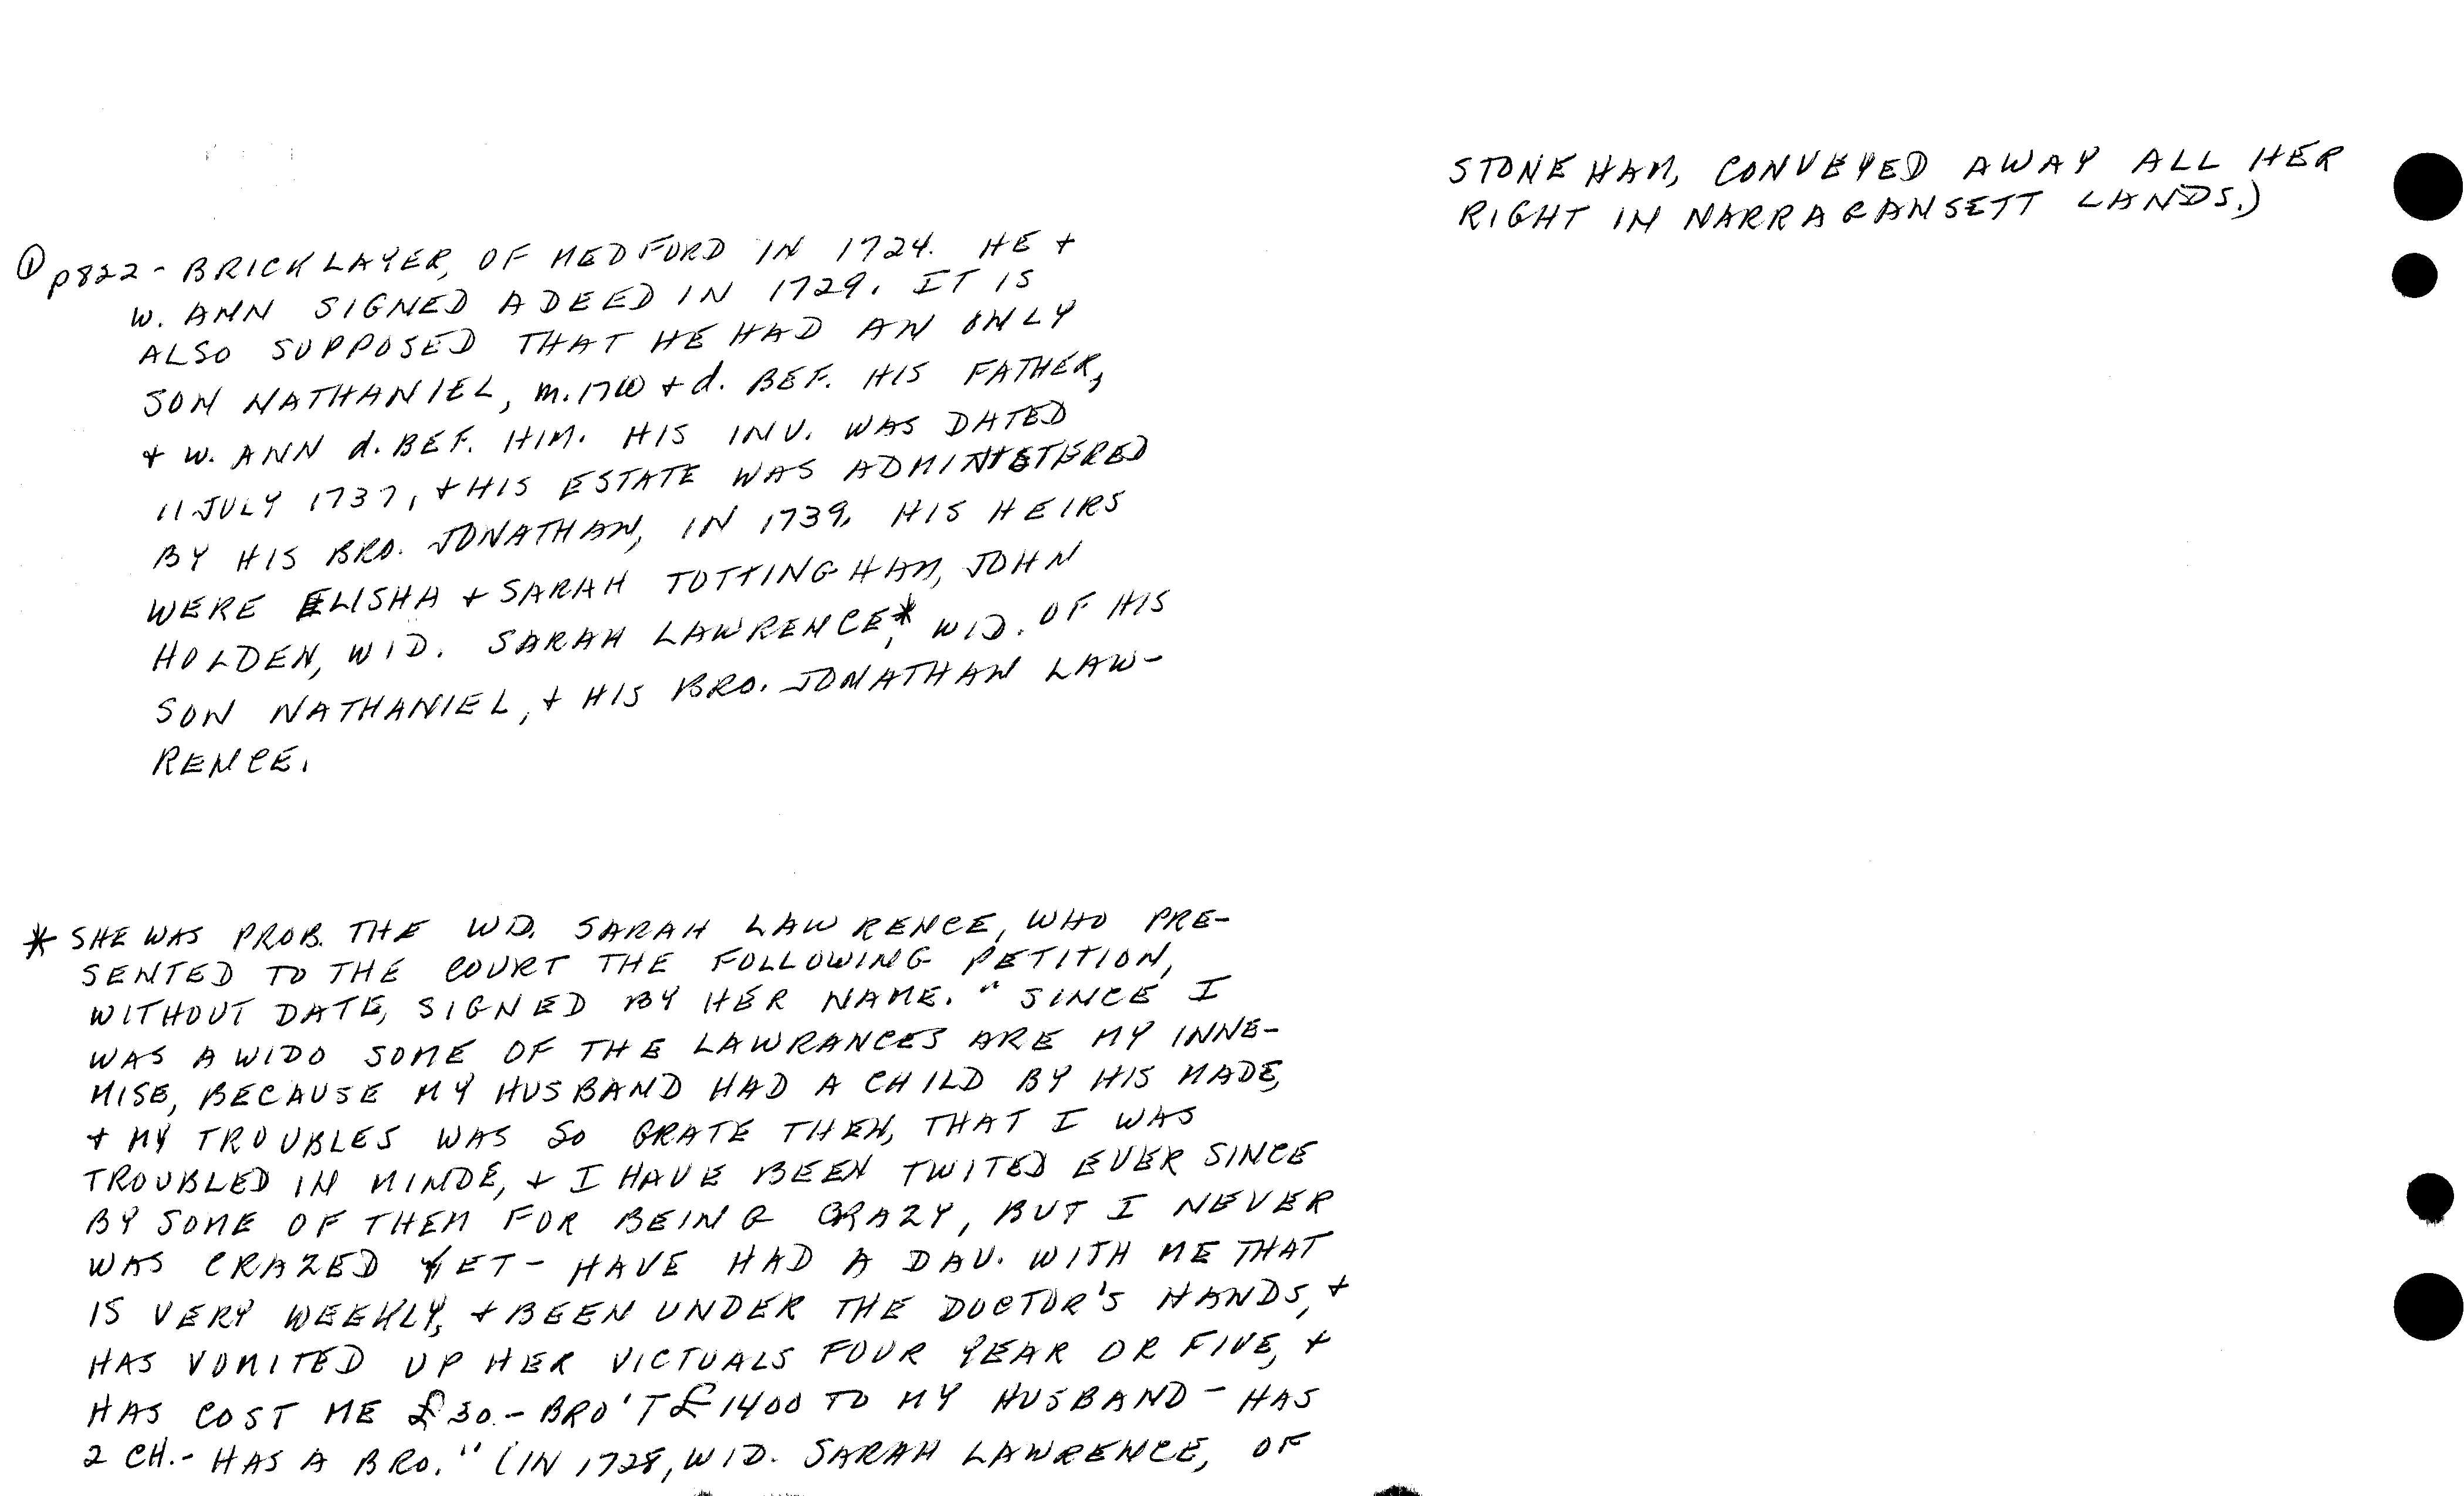 ① p822 - BRICKLAYER, OF MEDFORD IN 1724. HE +
W. ANN SIGNED A DEED IN 1729. IT IS
ALSO SUPPOSED THAT HE HAD AN ONLY
SON NATHANIEL, m. + d. BEF. HIS FATHER,
+ W. ANN d. BEF. HIM. HIS INV. WAS DATED
11 JULY 1737, + HIS ESTATE WAS ADMINISTERED
BY HIS BRO. JONATHAN, IN 1739. HIS HEIRS
WERE ELISHA + SARAH TOTTINGHAM, JOHN
HOLDEN, WID. SARAH LAWRENCE,* WID. OF HIS
SON NATHANIEL, + HIS BRO. JONATHAN LAW-
RENCE.
* SHE WAS PROB. THE WD. SARAH LAWRENCE, WHO PRE-
SENTED TO THE COURT THE FOLLOWING PETITION,
WITHOUT DATE, SIGNED BY HER NAME. "SINCE I
WAS A WIDO SOME OF THE LAWRANCES ARE MY INNE-
MISE, BECAUSE MY HUSBAND HAD A CHILD BY HIS MADE,
+ MY TROUBLES WAS SO GRATE THEN, THAT I WAS
TROUBLED IN MINDE, + I HAVE BEEN TWITED EVER SINCE
BY SOME OF THEM FOR BEING CRAZY, BUT I NEVER
WAS CRAZED YET - HAVE HAD A DAU. WITH ME THAT
IS VERY WEEKLY, + BEEN UNDER THE DOCTOR'S HANDS, +
HAS VOMITED UP HER VICTUALS FOUR YEAR OR FIVE, +
HAS COST ME £30. - BRO'T £1400 TO MY HUSBAND - HAS
2 CH. - HAS A BRO." (IN 1728, WID. SARAH LAWRENCE, OF
STONEHAM, CONVEYED AWAY ALL HER
RIGHT IN NARRAGANSETT LANDS.)